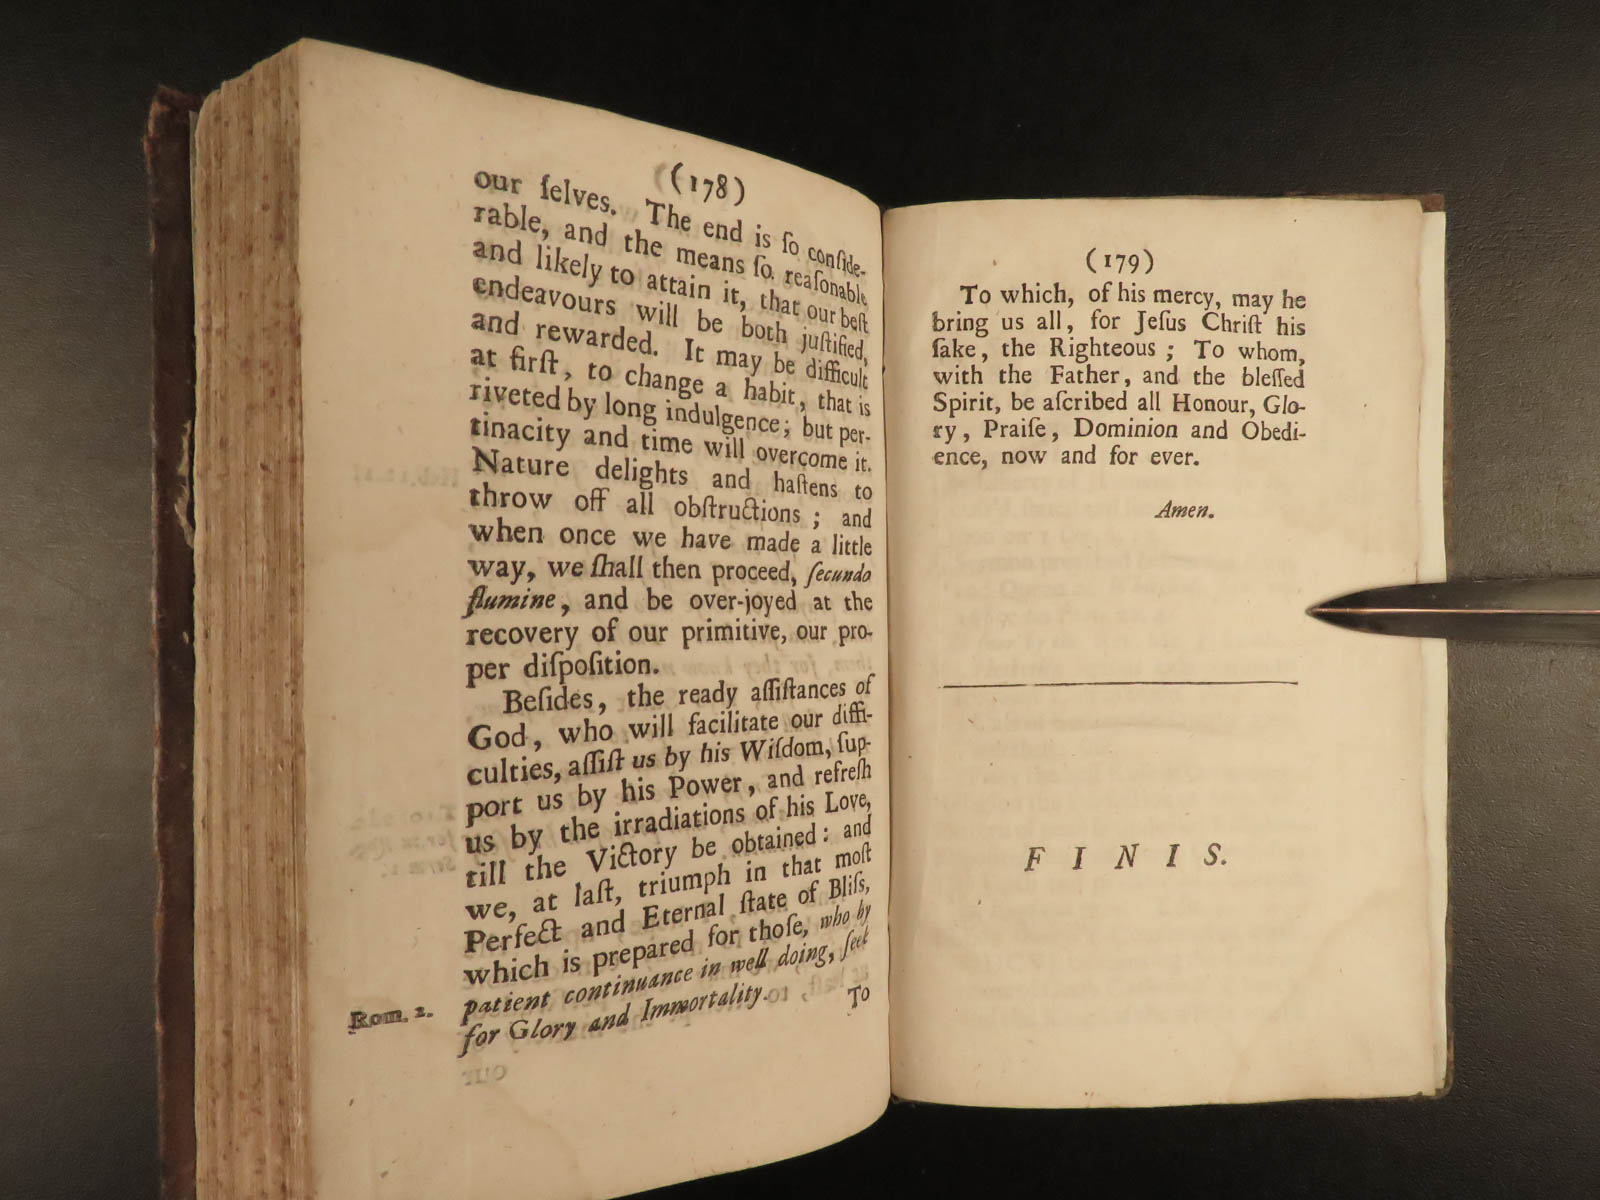 (178)
our ſelves. The end is ſo conſide-
rable, and the means ſo reaſonable
and likely to attain it, that our beſt
endeavours will be both juſtified,
and rewarded. It may be difficult
at firſt, to change a habit, that is
riveted by long indulgence; but per-
tinacity and time will overcome it.
Nature delights and haſtens to
throw off all obſtructions; and
when once we have made a little
way, we ſhall then proceed, ſecundo
flumine, and be over-joyed at the
recovery of our primitive, our pro-
per diſpoſition.
Beſides, the ready aſſiſtances of
God, who will facilitate our diffi-
culties, aſſiſt us by his Wiſdom, ſup-
port us by his Power, and refreſh
us by the irradiations of his Love,
till the Victory be obtained: and
we, at laſt, triumph in that moſt
Perfect and Eternal ſtate of Bliſs,
which is prepared for thoſe, who by
Rom. 2. patient continuance in well doing, ſeek
for Glory and Immortality.
To
(179)
To which, of his mercy, may he
bring us all, for Jeſus Chriſt his
ſake, the Righteous; To whom,
with the Father, and the bleſſed
Spirit, be aſcribed all Honour, Glo-
ry, Praiſe, Dominion and Obedi-
ence, now and for ever.
Amen.
FINIS.